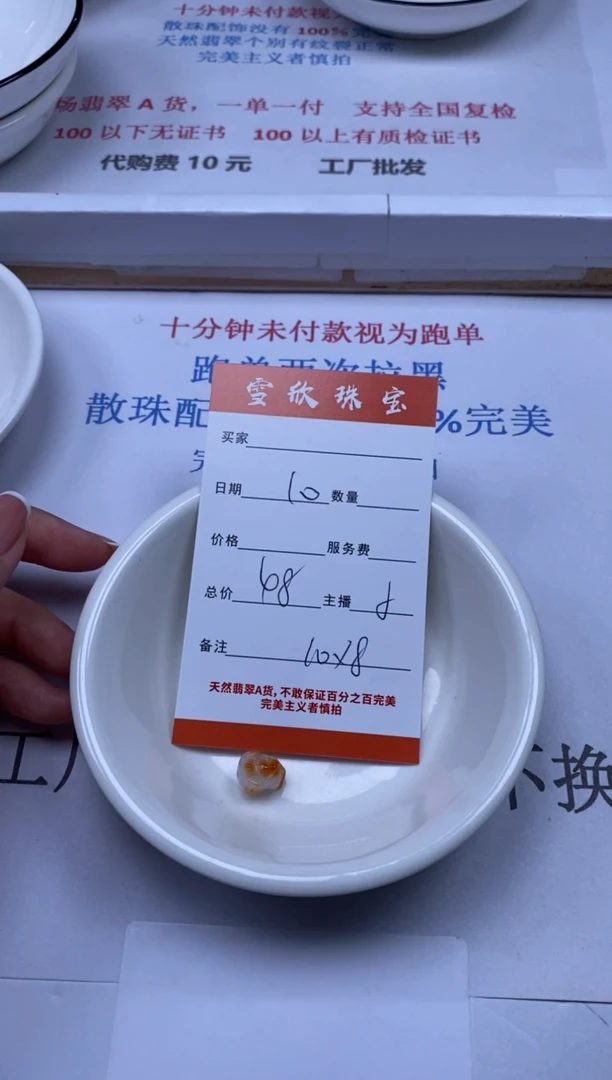 十分钟未付款视
散珠配饰没有 100%完
天然翡翠个别有纹裂正常
完美主义者慎拍
场翡翠 A 货，一单一付 支持全国复检
100 以下无证书 100 以上有质检证书
代购费 10 元 工厂批发
十分钟未付款视为跑单
跑单两次拉黑
散珠配 %完美
雪欣珠宝
买家
日期 10 数量
价格 服务费
总价 68 主播
备注 10×8
天然翡翠A货,不敢保证百分之百完美
完美主义者慎拍
工厂 不换